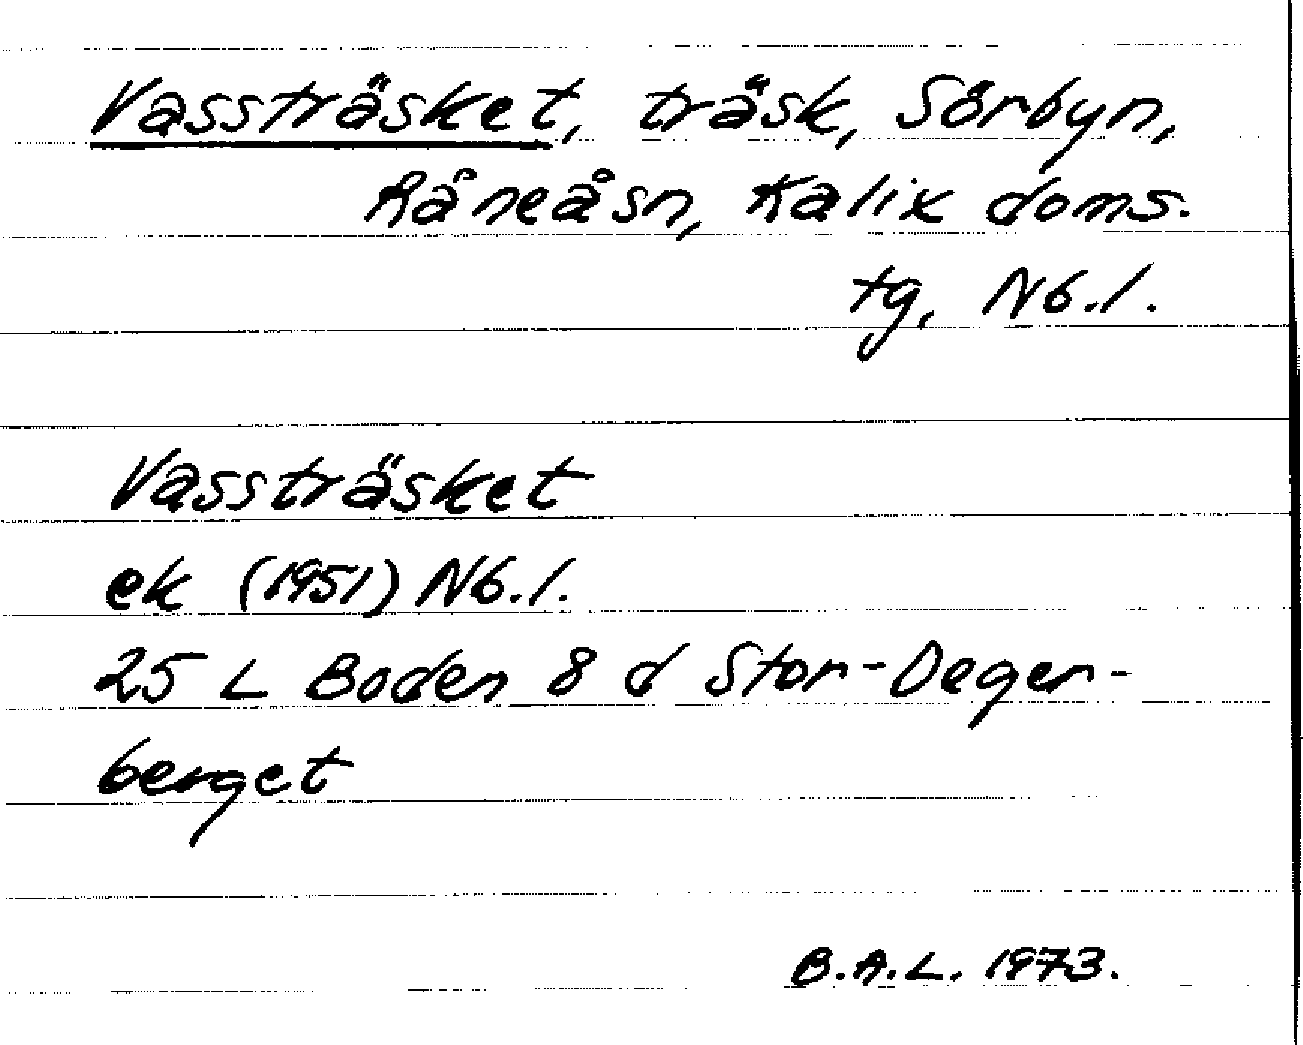 Vassträsket, träsk, Sörbyn,
Råneå sn, Kalix doms.
tg, Nb.l.
Vassträsket
ek (1951) Nb.l.
25 L Boden 8 d Stor-Deger-
berget
B.A.L. 1973.